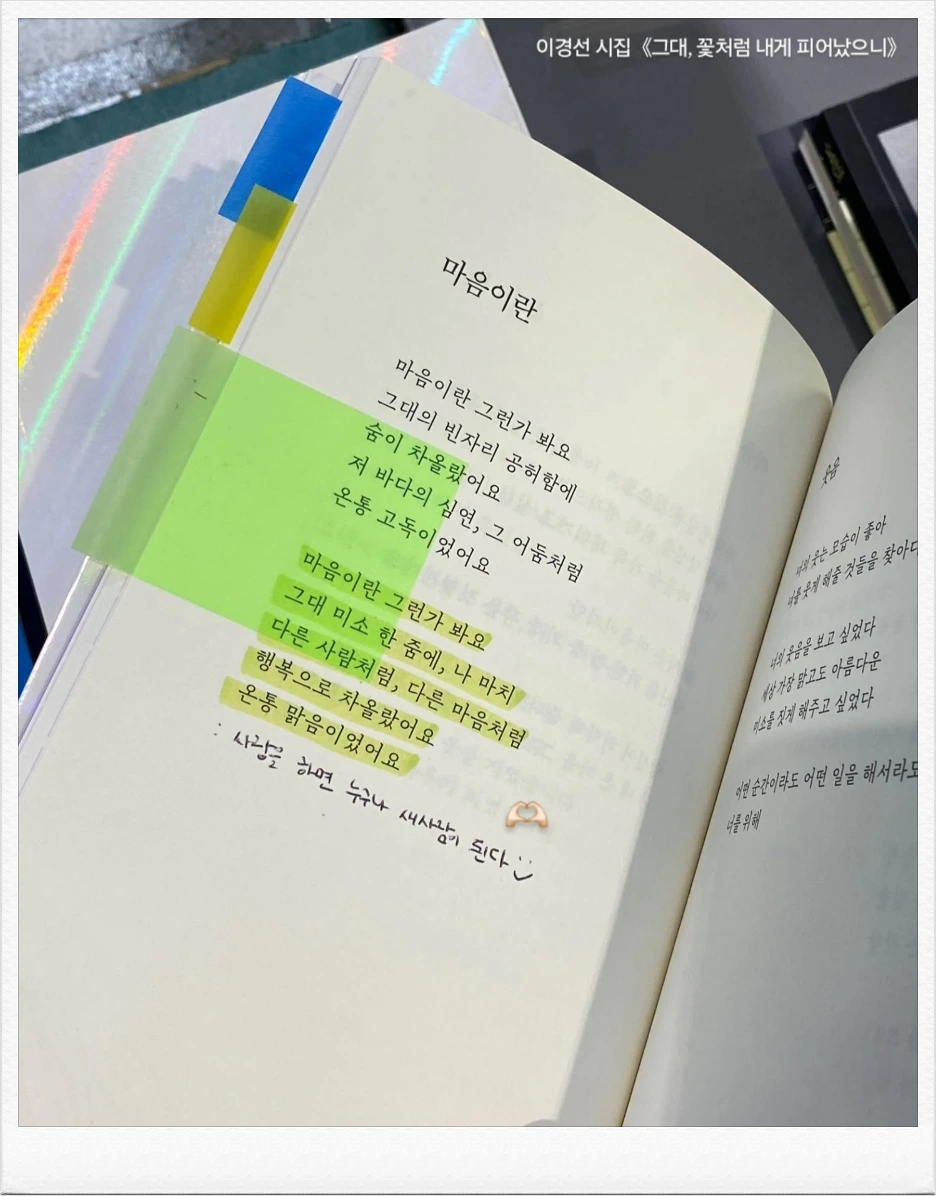 이경선 시집《그대, 꽃처럼 내게 피어났으니》
마음이란
마음이란 그런가 봐요
그대의 빈자리 공허함에
숨이 차올랐어요
저 바다의 심연, 그 어둠처럼
온통 고독이었어요
마음이란 그런가 봐요
그대 미소 한 줌에, 나 마치
다른 사람처럼, 다른 마음처럼
행복으로 차올랐어요
온통 맑음이었어요
: 사랑을 하면 누구나 새사람이 된다 :)
웃음
너의 웃는 모습이 좋아
너를 웃게 해줄 것들을 찾아다
너의 웃음을 보고 싶었다
세상 가장 맑고도 아름다운
미소를 짓게 해주고 싶었다
어떤 순간이라도 어떤 일을 해서라도
너를 위해